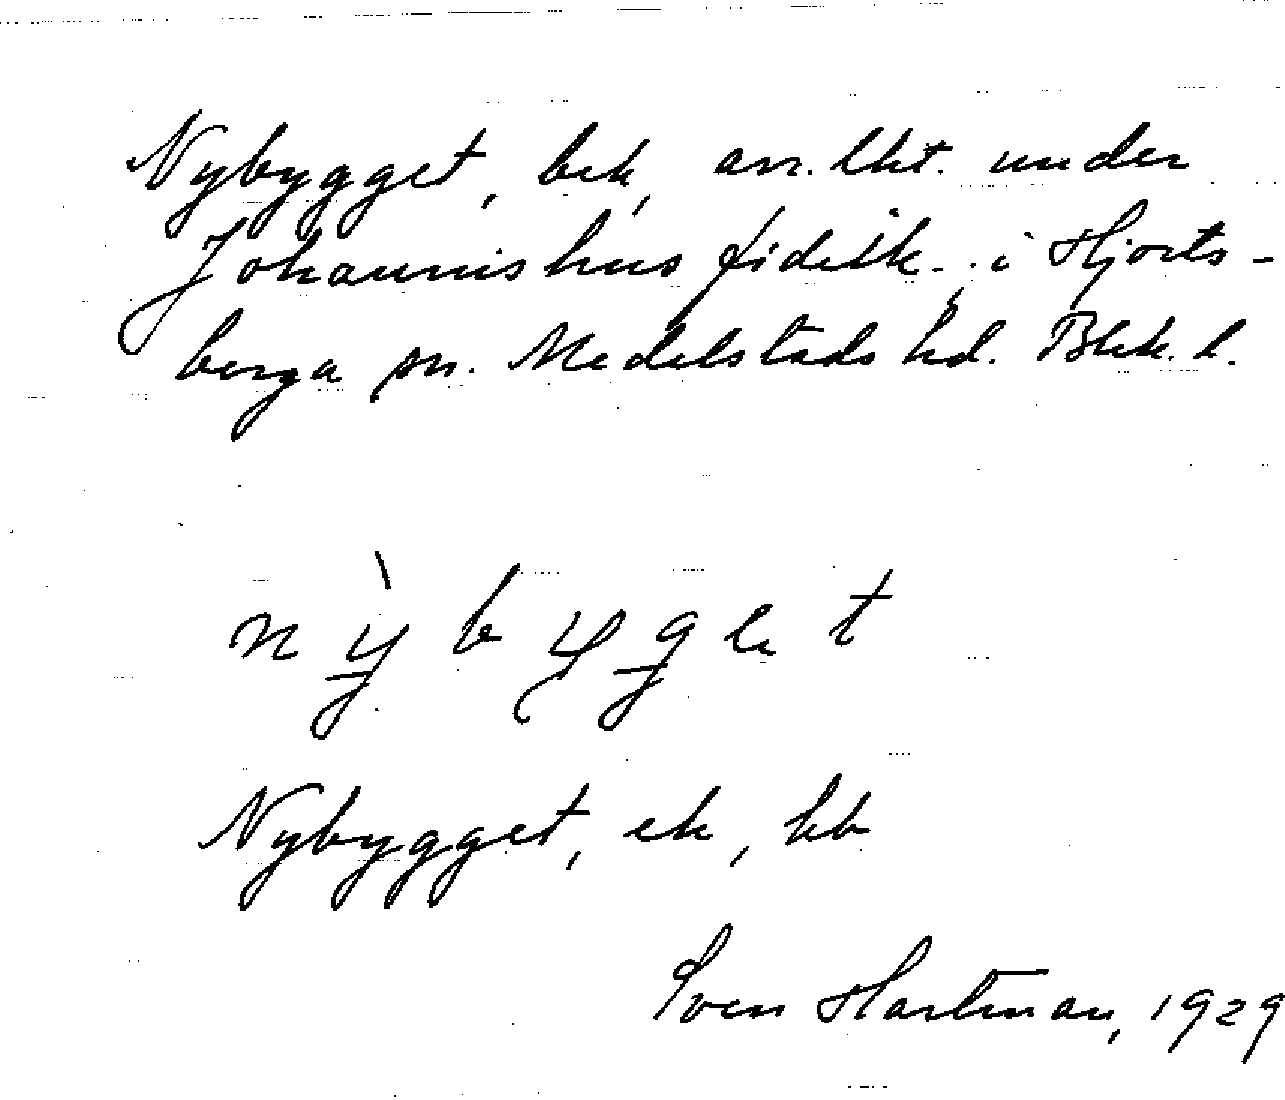 Nybygget, bek, arr. lht. under
Johannishus fideik. i Hjorts-
berga sn. Medelstads hd. Blek. l.
nỳbyget
Nybygget, ek, kb
Sven Hartman, 1929